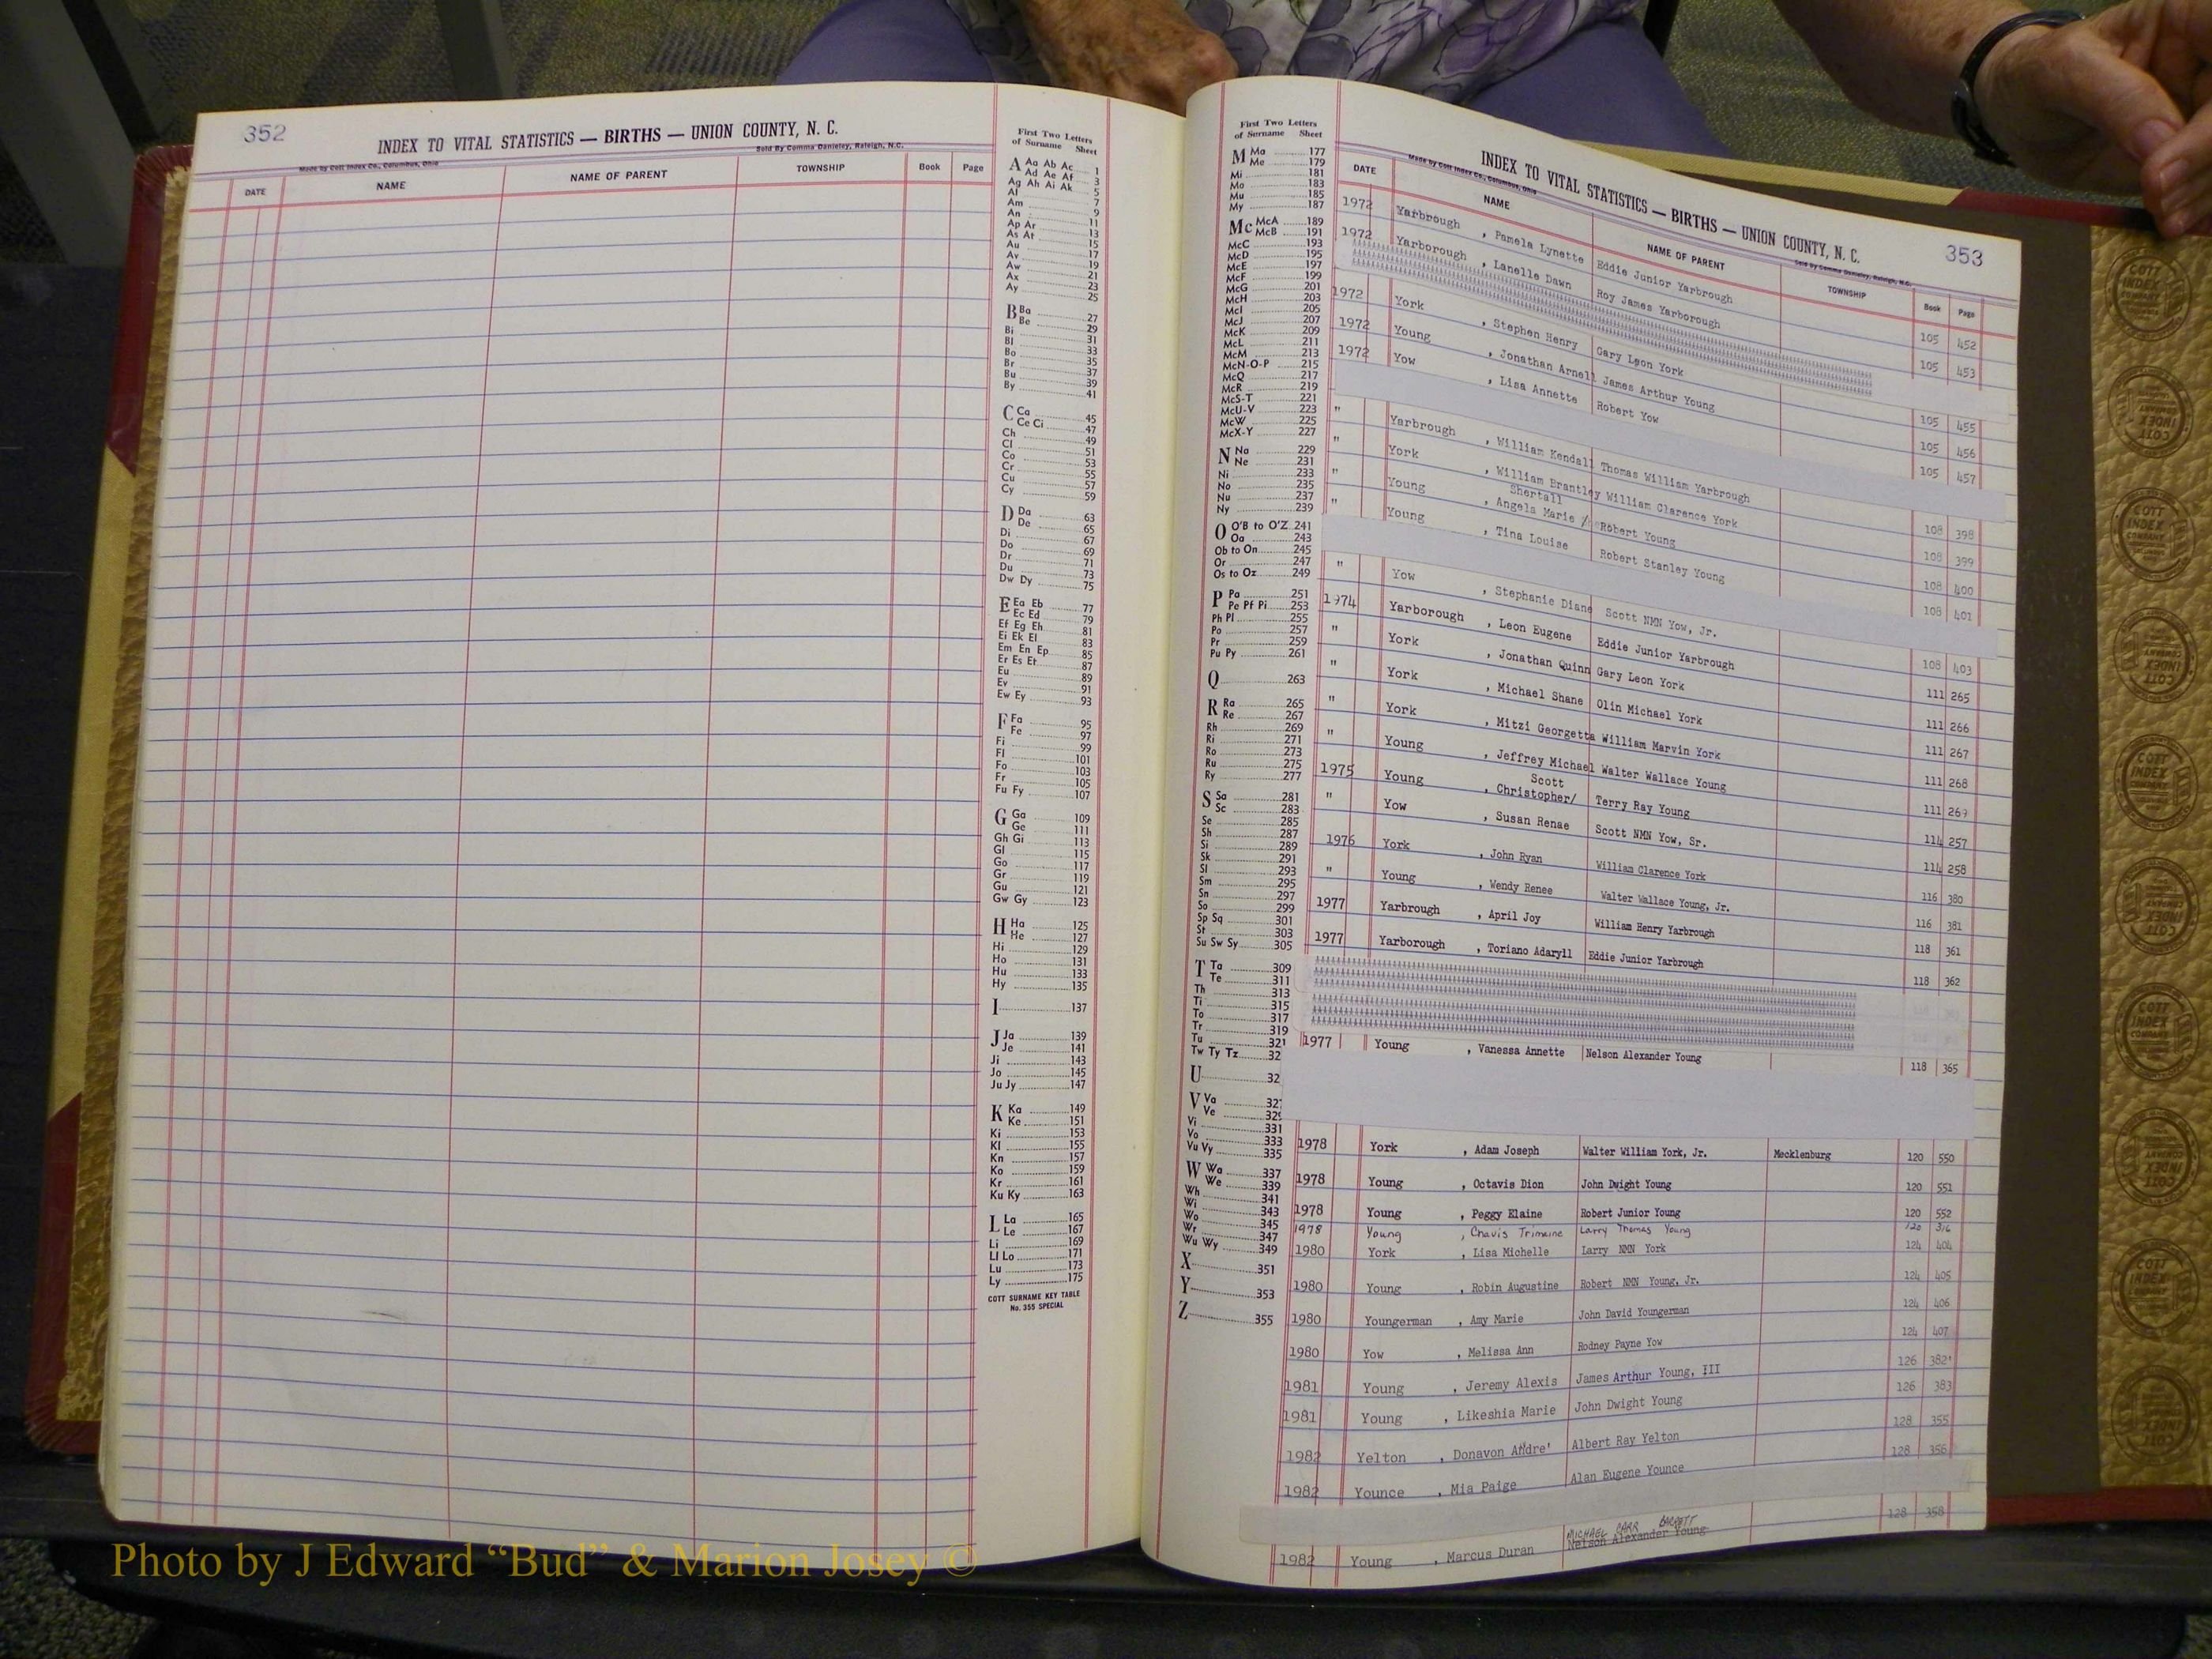 352
INDEX TO VITAL STATISTICS — BIRTHS — UNION COUNTY, N. C.
Made by Cott Index Co., Columbus, Ohio Sold By Comma Danieley, Raleigh, N.C.
DATE NAME NAME OF PARENT TOWNSHIP Book Page
First Two Letters
of Surname Sheet
A Aa Ab Ac 1
Ad Ae Af 3
Ag Ah Ai Ak 5
Al 7
Am 9
An 11
Ap Ar 13
As At 15
Au 17
Av 19
Aw 21
Ax 23
Ay 25
B Ba 27
Be 29
Bi 31
Bl 33
Bo 35
Br 37
Bu 39
By 41
C Ca 45
Ce Ci 47
Ch 49
Cl 51
Co 53
Cr 55
Cu 57
Cy 59
D Da 63
De 65
Di 67
Do 69
Dr 71
Du 73
Dw Dy 75
E Ea Eb 77
Ec Ed 79
Ef Eg Eh 81
Ei Ek El 83
Em En Ep 85
Er Es Et 87
Eu 89
Ev 91
Ew Ey 93
F Fa 95
Fe 97
Fi 99
Fl 101
Fo 103
Fr 105
Fu Fy 107
G Ga 109
Ge 111
Gh Gi 113
Gl 115
Go 117
Gr 119
Gu 121
Gw Gy 123
H Ha 125
He 127
Hi 129
Ho 131
Hu 133
Hy 135
I 137
J Ja 139
Je 141
Ji 143
Jo 145
Ju Jy 147
K Ka 149
Ke 151
Ki 153
Kl 155
Kn 157
Ko 159
Kr 161
Ku Ky 163
L La 165
Le 167
Li 169
Ll Lo 171
Lu 173
Ly 175
COTT SURNAME KEY TABLE
No. 355 SPECIAL
First Two Letters
of Surname Sheet
M Ma 177
Me 179
Mi 181
Mo 183
Mu 185
My 187
Mc McA 189
McB 191
McC 193
McD 195
McE 197
McF 199
McG 201
McH 203
McI 205
McJ 207
McK 209
McL 211
McM 213
McN-O-P 215
McQ 217
McR 219
McS-T 221
McU-V 223
McW 225
McX-Y 227
N Na 229
Ne 231
Ni 233
No 235
Nu 237
Ny 239
O O'B to O'Z 241
Oa 243
Ob to On 245
Or 247
Os to Oz 249
P Pa 251
Pe Pf Pi 253
Ph Pl 255
Po 257
Pr 259
Pu Py 261
Q 263
R Ra 265
Re 267
Rh 269
Ri 271
Ro 273
Ru 275
Ry 277
S Sa 281
Sc 283
Se 285
Sh 287
Si 289
Sk 291
Sl 293
Sm 295
Sn 297
So 299
Sp Sq 301
St 303
Su Sw Sy 305
T Ta 309
Te 311
Th 313
Ti 315
To 317
Tr 319
Tu 321
Tw Ty Tz 32
U 32
V Va 32
Ve 329
Vi 331
Vo 333
Vu Vy 335
W Wa 337
We 339
Wh 341
Wi 343
Wo 345
Wr 347
Wu Wy 349
X 351
Y 353
Z 355
INDEX TO VITAL STATISTICS — BIRTHS — UNION COUNTY, N. C. 353
Made by Cott Index Co., Columbus, Ohio Sold By Comma Danieley, Raleigh, N.C.
DATE NAME NAME OF PARENT TOWNSHIP Book Page
1972 Yarbrough , Pamela Lynette Eddie Junior Yarbrough 105 452
1972 Yarborough , Lanelle Dawn Roy James Yarborough 105 453
1972 York , Stephen Henry Gary Leon York 105 455
1972 Young , Jonathan Arnell James Arthur Young 105 456
1972 Yow , Lisa Annette Robert Yow 105 457
" Yarbrough , William Kendall Thomas William Yarbrough 108 398
" York , William Brantley William Clarence York 108 399
Shertall
" Young , Angela Marie / Robert Young 108 400
" Young , Tina Louise Robert Stanley Young 108 401
" Yow , Stephanie Diane Scott NMN Yow, Jr. 108 403
1974 Yarborough , Leon Eugene Eddie Junior Yarbrough 111 265
" York , Jonathan Quinn Gary Leon York 111 266
" York , Michael Shane Olin Michael York 111 267
" York , Mitzi Georgetta William Marvin York 111 268
" Young , Jeffrey Michael Walter Wallace Young 111 269
Scott
1975 Young , Christopher/ Terry Ray Young 114 257
" Yow , Susan Renae Scott NMN Yow, Sr. 114 258
1976 York , John Ryan William Clarence York 116 380
" Young , Wendy Renee Walter Wallace Young, Jr. 116 381
1977 Yarbrough , April Joy William Henry Yarbrough 118 361
1977 Yarborough , Toriano Adaryll Eddie Junior Yarbrough 118 362
1977 Young , Vanessa Annette Nelson Alexander Young 118 365
1978 York , Adam Joseph Walter William York, Jr. Mecklenburg 120 550
1978 Young , Octavis Dion John Dwight Young 120 551
1978 Young , Peggy Elaine Robert Junior Young 120 552
1978 Young , Chavis Trimaine Larry Thomas Young 120 316
1980 York , Lisa Michelle Larry NMN York 124 404
1980 Young , Robin Augustine Robert NMN Young, Jr. 124 405
1980 Youngerman , Amy Marie John David Youngerman 124 406
1980 Yow , Melissa Ann Rodney Payne Yow 124 407
1981 Young , Jeremy Alexis James Arthur Young, III 126 382
1981 Young , Likeshia Marie John Dwight Young 126 383
1982 Yelton , Donavon Andre' Albert Ray Yelton 128 355
1982 Younce , Mia Paige Alan Eugene Younce 128 356
MICHAEL CARR BARRETT
1982 Young , Marcus Duran Nelson Alexander Young 128 358
Photo by J Edward "Bud" & Marion Josey ©